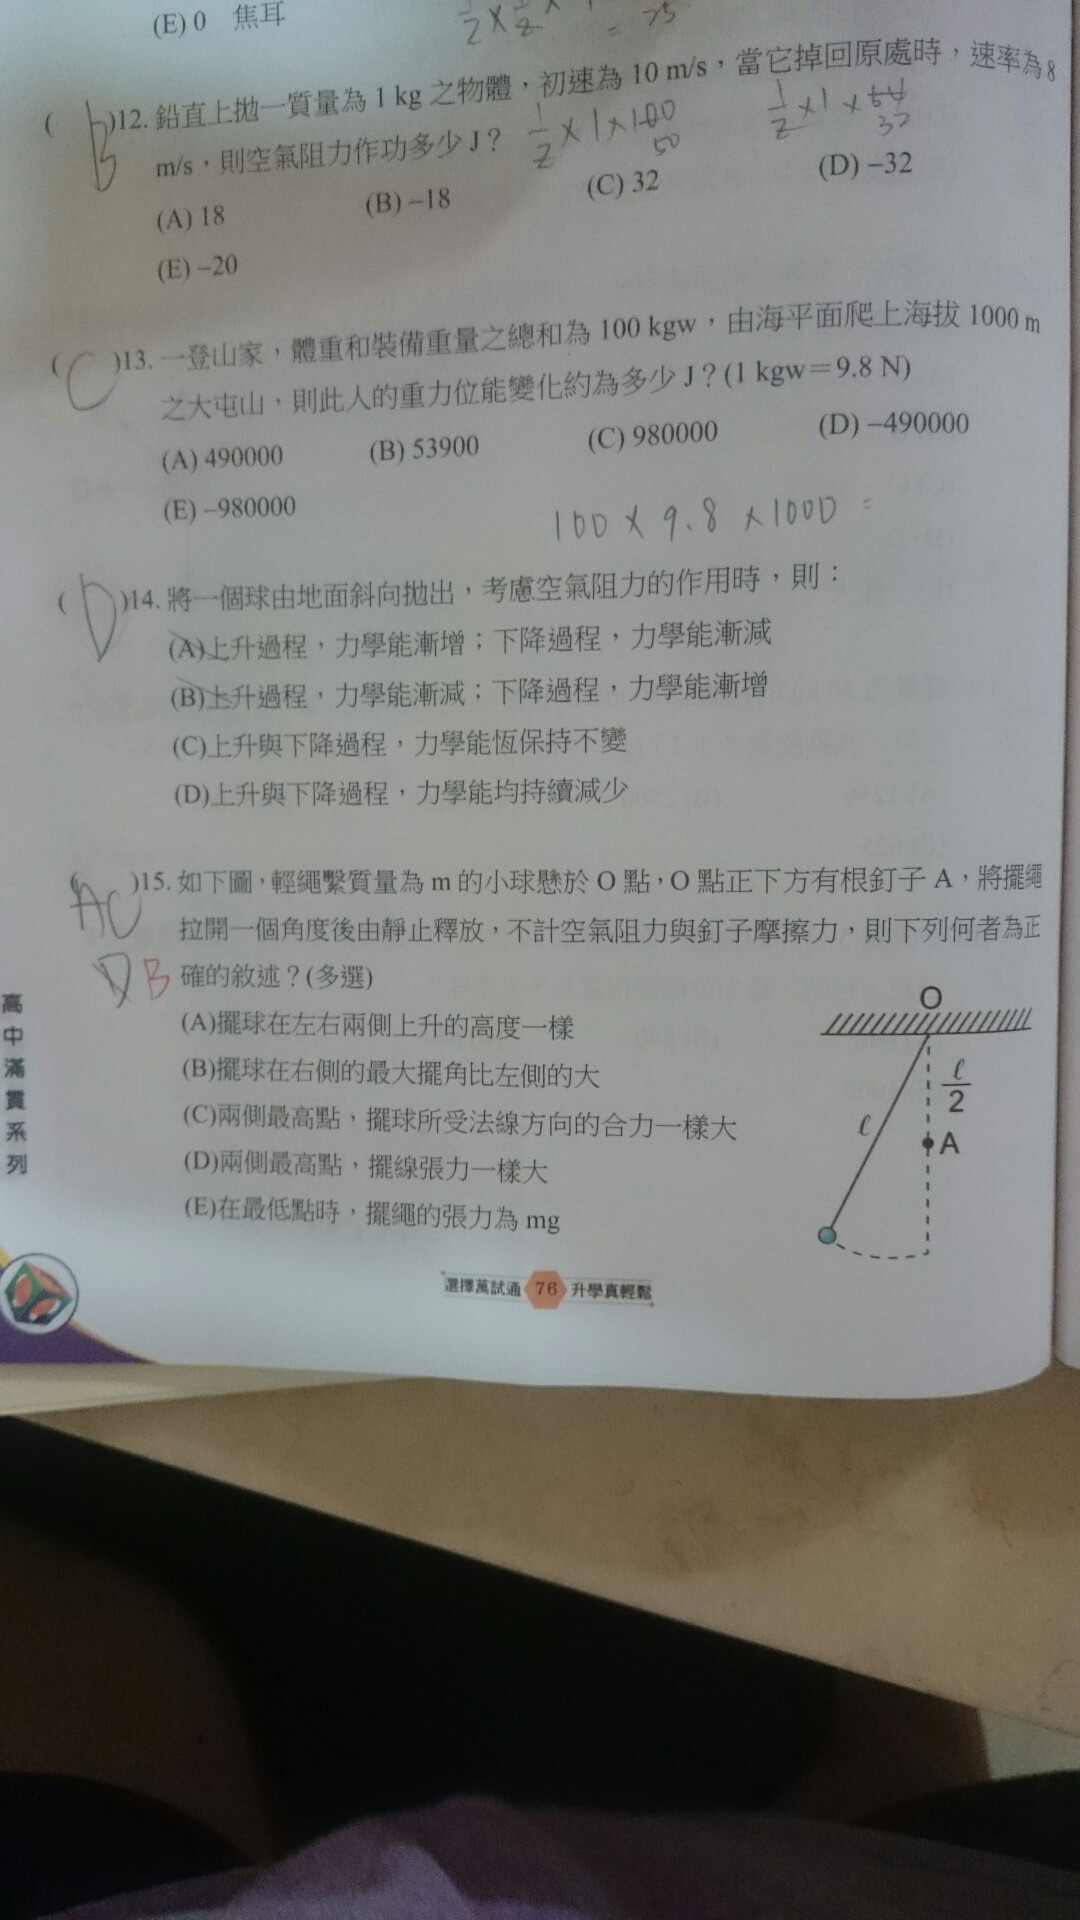 (E) 0 焦耳
½×½×
= 25
(B)12. 鉛直上拋一質量為 1 kg 之物體，初速為 10 m/s，當它掉回原處時，速率為 8
m/s，則空氣阻力作功多少 J？ ½×1×100 50 ½×1×64 32
(A) 18 (B) –18 (C) 32 (D) –32
(E) –20
(C)13. 一登山家，體重和裝備重量之總和為 100 kgw，由海平面爬上海拔 1000 m
之大屯山，則此人的重力位能變化約為多少 J？(1 kgw＝9.8 N)
(A) 490000 (B) 53900 (C) 980000 (D) –490000
(E) –980000
100 × 9.8 × 1000 =
(D)14. 將一個球由地面斜向拋出，考慮空氣阻力的作用時，則：
(A)上升過程，力學能漸增；下降過程，力學能漸減
(B)上升過程，力學能漸減；下降過程，力學能漸增
(C)上升與下降過程，力學能恆保持不變
(D)上升與下降過程，力學能均持續減少
(AC)15. 如下圖，輕繩繫質量為 m 的小球懸於 O 點，O 點正下方有根釘子 A，將擺繩
拉開一個角度後由靜止釋放，不計空氣阻力與釘子摩擦力，則下列何者為正
DB 確的敘述？(多選)
(A)擺球在左右兩側上升的高度一樣
(B)擺球在右側的最大擺角比左側的大
(C)兩側最高點，擺球所受法線方向的合力一樣大
(D)兩側最高點，擺線張力一樣大
(E)在最低點時，擺繩的張力為 mg
O
ℓ/2
ℓ
A
高中滿貫系列
選擇萬試通 76 升學真輕鬆